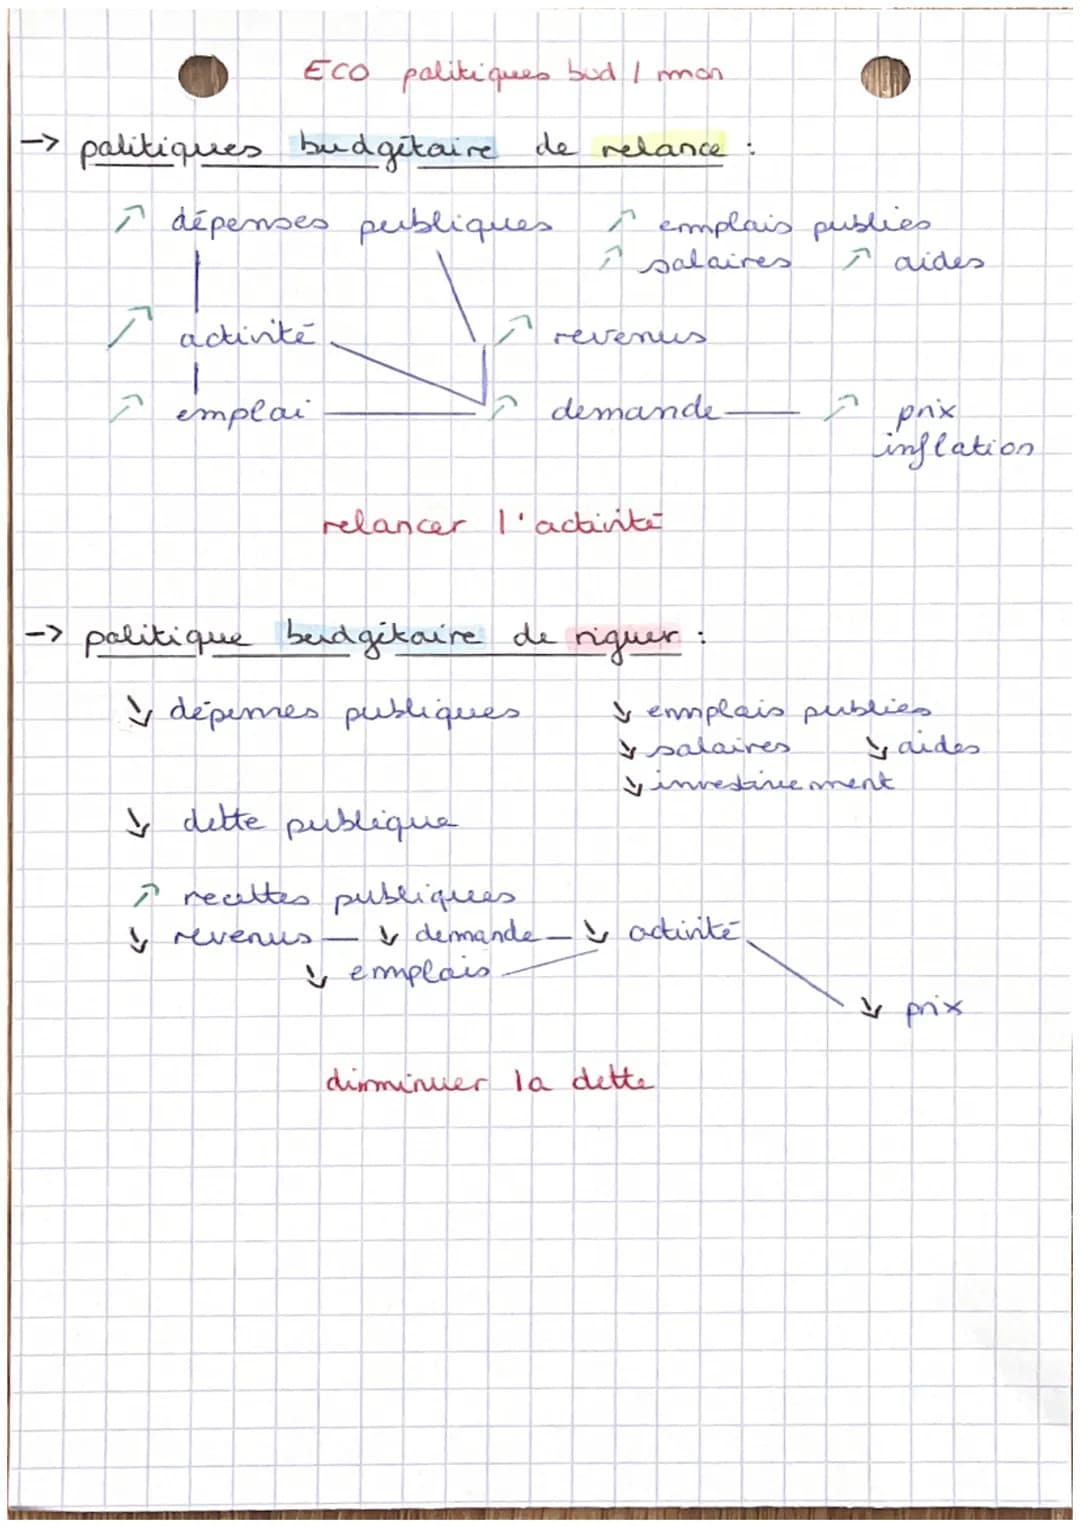 ECO politiques bud / mon
-> politiques budgétaire de relance :
↗ dépenses publiques ↗ emplois publics
↗ salaires ↗ aides
↗ activité ↗ revenus
↗ emploi ↗ demande ↗ prix
inflation
relancer l'activité
-> politique budgétaire de riguer :
↘ dépenses publiques ↘ emplois publics
↘ salaires ↘ aides
↘ investissement
↘ dette publique
↗ recettes publiques
↘ revenus ↘ demande ↘ activité
↘ emplois
↘ prix
diminuer la dette